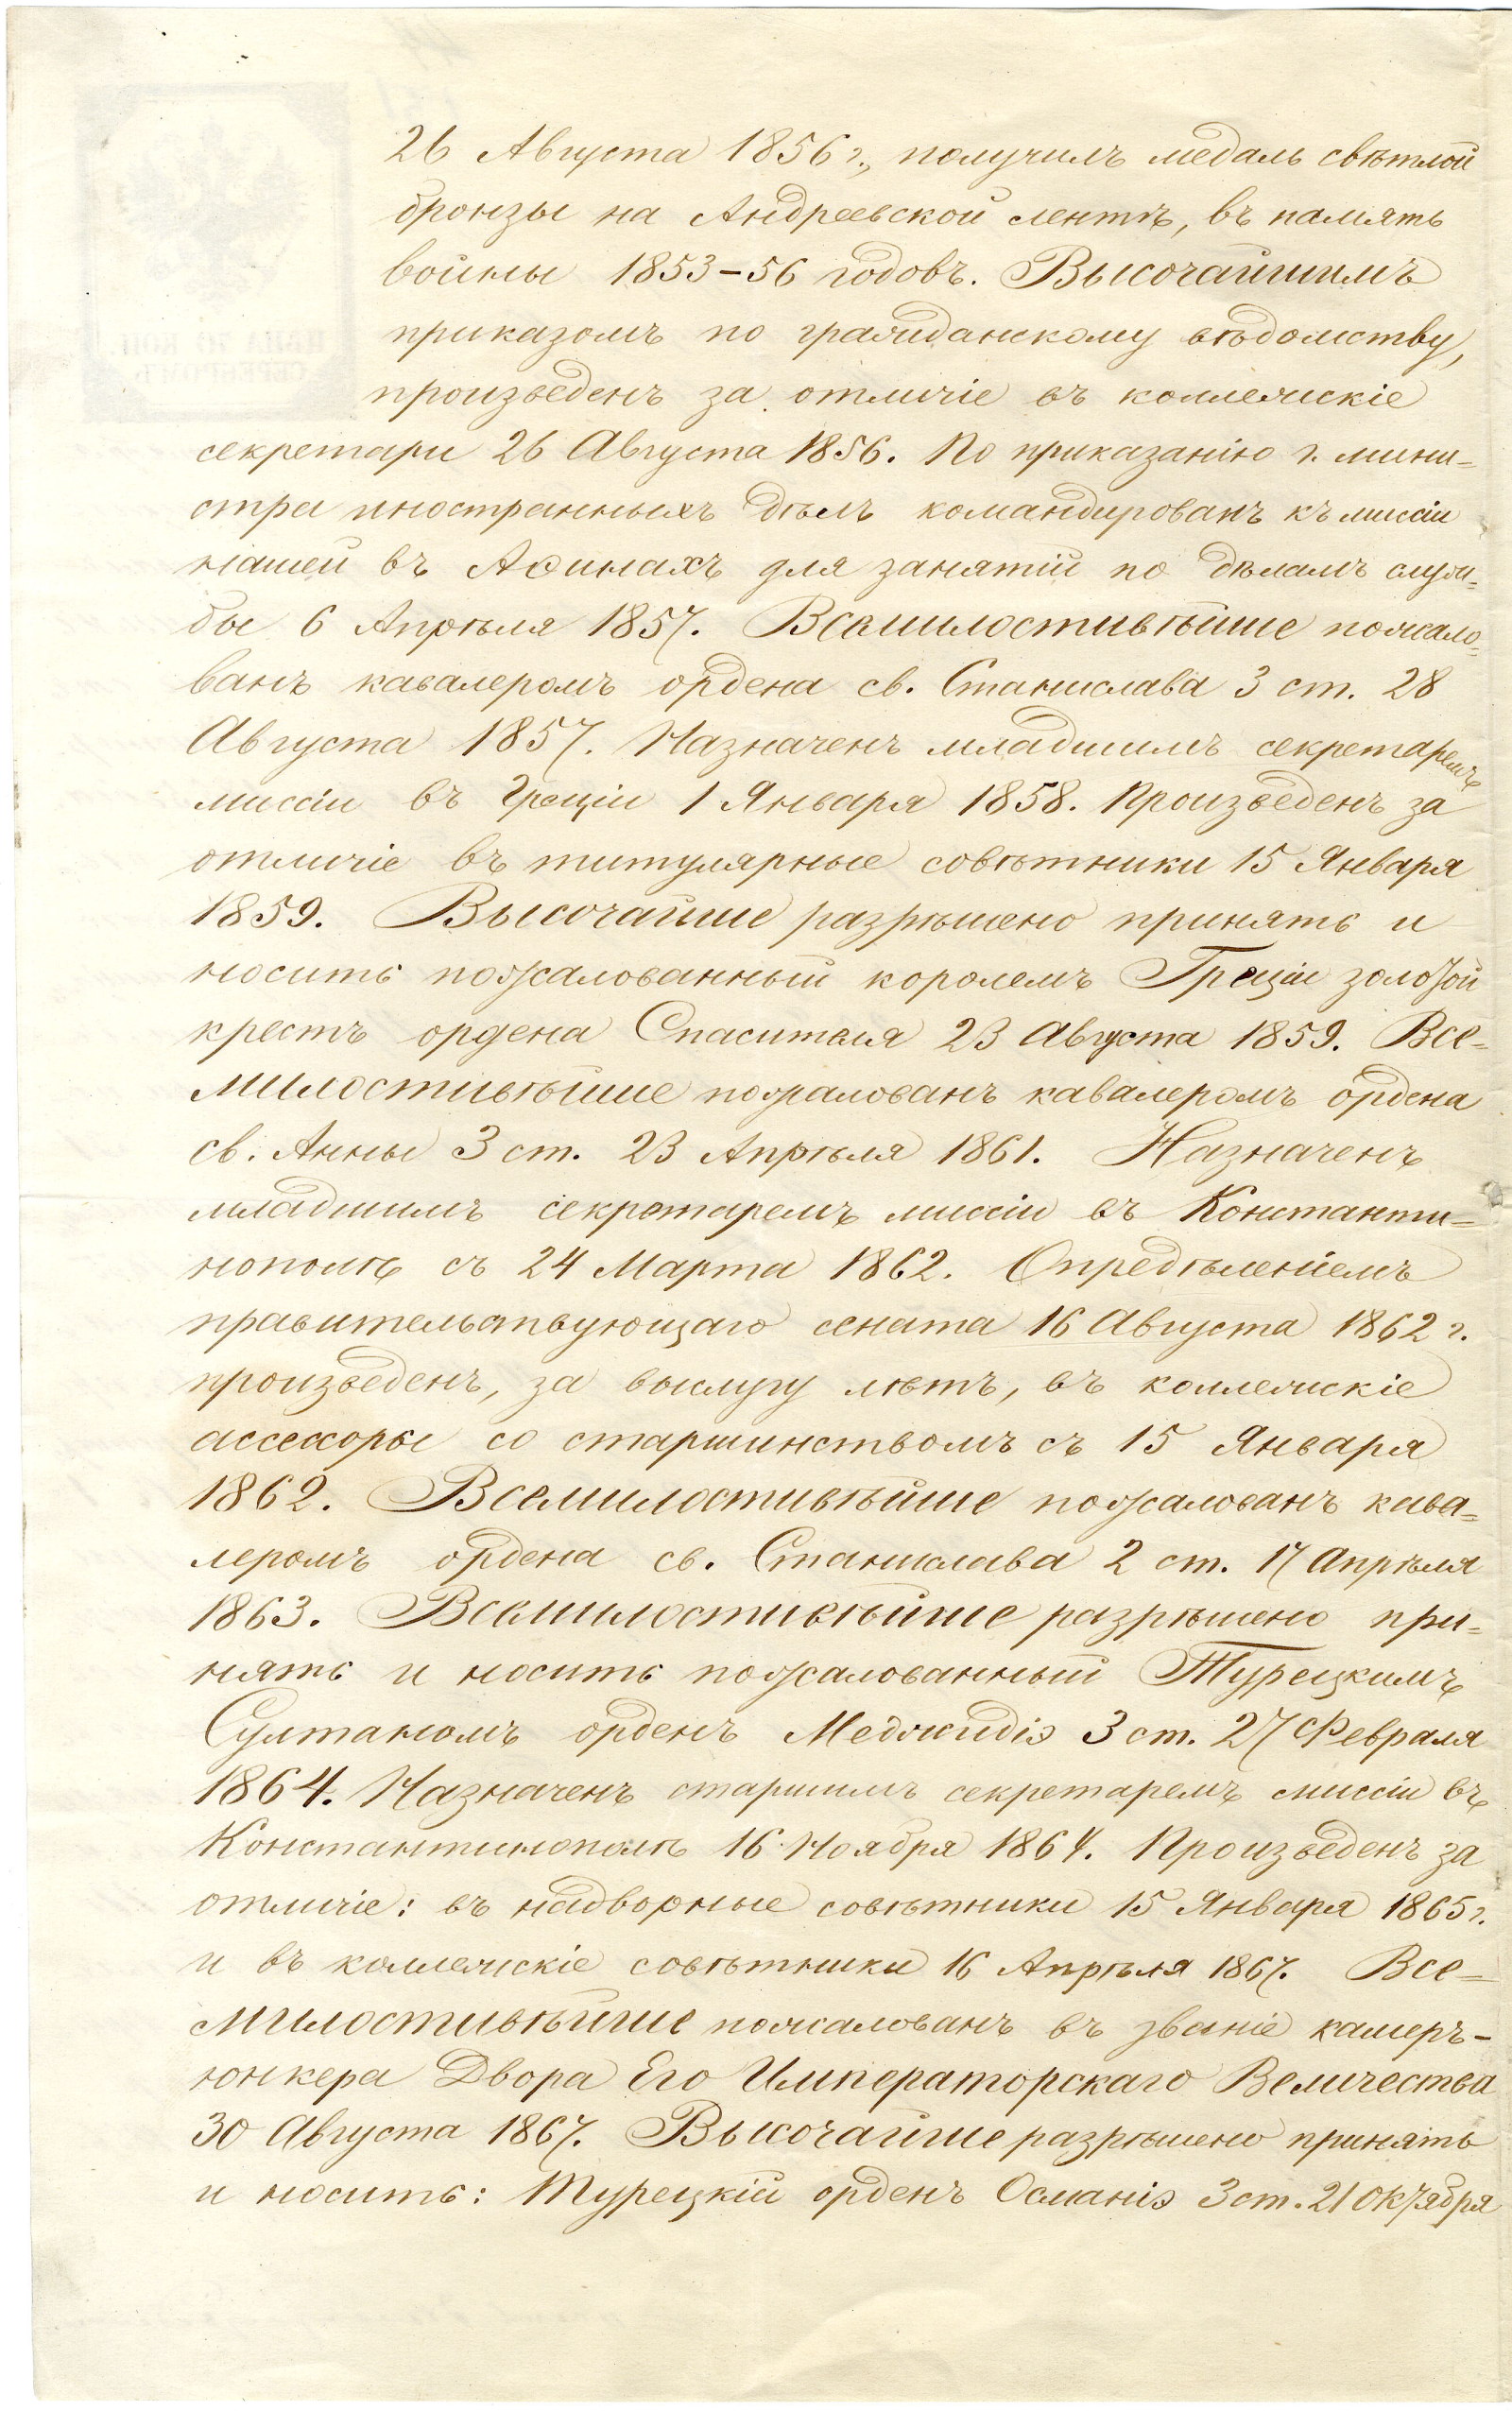 26 Августа 1856 г., получилъ медаль свѣтлой
бронзы на Андреевской лентѣ, въ память
войны 1853–56 годовъ. Высочайшимъ
приказомъ по гражданскому вѣдомству,
произведенъ за отличіе въ коллежскіе
секретари 26 Августа 1856. По приказанію г. мини=
стра иностранныхъ дѣлъ командированъ къ миссіи
нашей въ Аѳинахъ для занятій по дѣламъ служ=
бы 6 Апрѣля 1857. Всемилостивѣйше пожало=
ванъ кавалеромъ ордена св. Станислава 3 ст. 28
Августа 1857. Назначенъ младшимъ секретаремъ
миссіи въ Греціи 1 Января 1858. Произведенъ за
отличіе въ титулярные совѣтники 15 Января
1859. Высочайше разрѣшено принять и
носить пожалованный королемъ Греціи золотой
крестъ ордена Спасителя 23 Августа 1859. Все=
милостивѣйше пожалованъ кавалеромъ ордена
св. Анны 3 ст. 23 Апрѣля 1861. Назначенъ
младшимъ секретаремъ миссіи въ Константи=
нополѣ съ 24 Марта 1862. Опредѣленіемъ
правительствующаго сената 16 Августа 1862 г.
произведенъ, за выслугу лѣтъ, въ коллежскіе
ассесоры со старшинствомъ съ 15 Января
1862. Всемилостивѣйше пожалованъ кава=
леромъ ордена св. Станислава 2 ст. 17 Апрѣля
1863. Всемилостивѣйше разрѣшено при=
нять и носить пожалованный Турецкимъ
Султаномъ орденъ Меджидіэ 3 ст. 27 Февраля
1864. Назначенъ старшимъ секретаремъ миссіи въ
Константинополѣ 16 Ноября 1864. Произведенъ за
отличіе: въ надворные совѣтники 15 Января 1865 г.
и въ коллежскіе совѣтники 16 Апрѣля 1867. Все=
милостивѣйше пожалованъ въ званіе камеръ-
юнкера Двора Его Императорскаго Величества
30 Августа 1867. Высочайше разрѣшено принять
и носить: Турецкій орденъ Османіэ 3 ст. 21 Октября